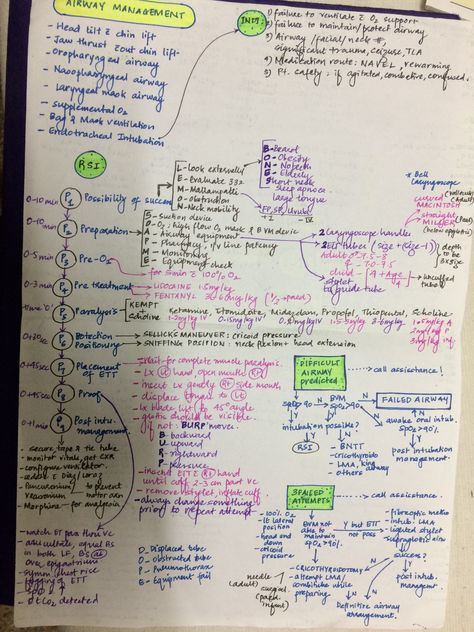 AIRWAY MANAGEMENT
- Head tilt c̄ chin lift
- Jaw thrust s̄out chin lift
- Oropharyngeal airway
- Nasopharyngeal airway
- Laryngeal mask airway
- Supplemental O₂
- Bag & Mask ventilation
- Endotracheal Intubation
INDT:
1) failure to ventilate c̄ O₂ support
2) failure to maintain/protect airway
3) Airway/facial/neck #,
significant trauma, seizure, TLA
4) Medication route: NAVEL, rewarming
5) Pt. safety: if agitated, combative, confused.
RSI
0-10 min P1 Possibility of success
L-Look externally
E- Evaluate 332
M- Mallampatti
O-obstruction
N-Neck mobility
B-Beard
O-Obesity
N-No teeth
E-Elderly
S-Short neck
sleep apnoea
large tongue
FP, SP, Uvula
0-10 min P2 Preparation
S- Suction device
O- O₂, high flow O₂ mask & BVM device
A- Airway equipment
P- Pharmacy, IV line patency
M- Monitoring
E- Equipment check
2 Laryngoscope handles
2 ETT tubes (size + (size-1))
Adult ♂ 7.5-8
♀ 7.0-7.5
child - 4 + Age/4
uncuffed tube
stylet
guide tube
* Bell Laryngoscope
curved MACINTOSH (adult)
straight MILLER
depth to be
0-5 min P3 Pre-O₂
for 5min c̄ 100% O₂
0-3 min P4 Pre treatment
LIDOCAINE 1.5mg/kg
FENTANYL
time '0' P5 Paralysis
KEMPT
Ketamine, Etomidate, Midazolam, Propofol, Thiopental, Scholine
0+20sec P6 Protection Positioning
SELLICKS MANEUVER: cricoid pressure
SNIFFING POSITION: neck flexion + head extension
0+45sec P7 Placement of ETT
- wait for complete muscle paralysis
- Lx Lt hand, open mouth Rt
- insert Lx gently Rt side mouth
- displace tongue to Lt
- Lx blade lift to 45° angle
glottis should be visible
if not: BURP moves:
B- backward
U- upward
R- rightward
P- pressure
- insert ETT c̄ Rt hand
until cuff 2-3 cm past VC
- remove stylet, inflate cuff
- always change something
prior to repeat attempt
0+45sec P8 Proof
0+1min P9 Post intu. management
- secure tape & tie tube
- monitor vitals, get CXR
- configure ventilator
- Pancuronium/ Vecuronium to prevent motor
- Morphine - for analgesia
- watch ET pass thru VC
- auscultate, equal BS
in both LF, BS
over epigastrium
- Symm. chest rise
- fogging of ETT
- SPO₂
- ETCO₂ detected
D- Displaced tube
O- obstructed tube
P- Pneumothorax
E- Equipment fail
DIFFICULT AIRWAY predicted
call assistance!
SPO₂ >90
N BVM SPO₂ >90%
N FAILED AIRWAY
intubation possible?
Y RSI
N
- BNTT
- cricothyroido
- LMA, king
- others airway
awake oral intub.
SPO₂ >90%
Y
post intubation management.
3 FAILED ATTEMPTS
call assistance
- 100% O₂
- Lt lateral position
- head end down
- cricoid pressure
BVM not able to maintain SPO₂ >90%
Y but ETT not pass
- fibreoptic metho
- intub. LMA
- lighted stylet
- supraglottic airw
success?
Y
post intub. managemt
N
- CRICOTHYROTOMY
- attempt LMA/ combitube while preparing
needle (adult)
Definitive airway arrangement.